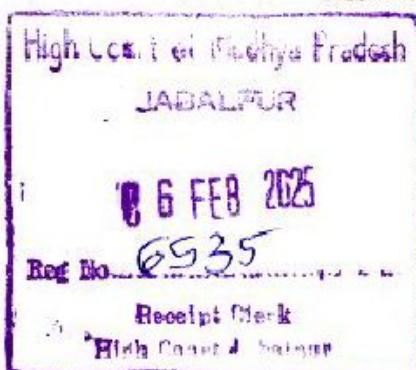 High Court of Madhya Pradesh
JABALPUR
6 FEB 2025
Reg No. 6535
Receipt Clerk
High Court